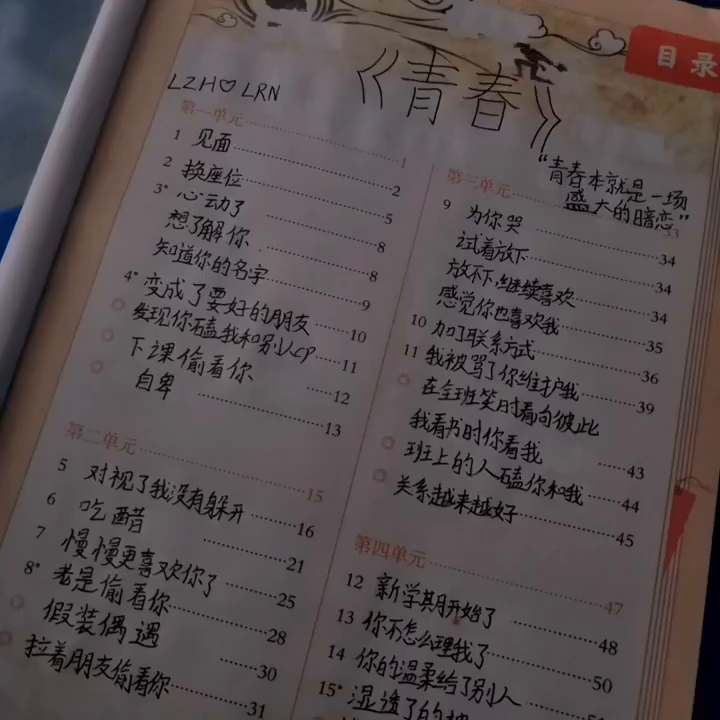 目录
《青春》
LZH♡LRN
"青春本就是一场
盛大的暗恋"
第一单元 1
1 见面 2
2 换座位 5
3* 心动了 8
想了解你 8
知道你的名字 9
4* 变成了要好的朋友 10
发现你磕我和别人cp 11
下课偷看你 12
自卑 13
第二单元 15
5 对视了我没有躲开 16
6 吃醋 21
7 慢慢更喜欢你了 25
8* 老是偷看你 28
假装偶遇 30
拉着朋友偷看你 31
第三单元 33
9 为你哭 34
试着放下 34
放不下,继续喜欢 34
感觉你也喜欢我 35
10 加了联系方式 36
11 我被骂了你维护我 39
在全班笑时看向彼此
我看书时你看我 43
班上的人磕你和我 44
关系越来越好 45
第四单元 47
12 新学期开始了 48
13 你不怎么理我了 50
14 你的温柔给了别人
15* 湿透了的